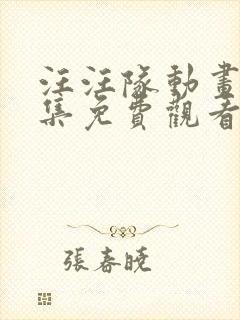 汪汪隊動畫
集免費觀看
張春曉